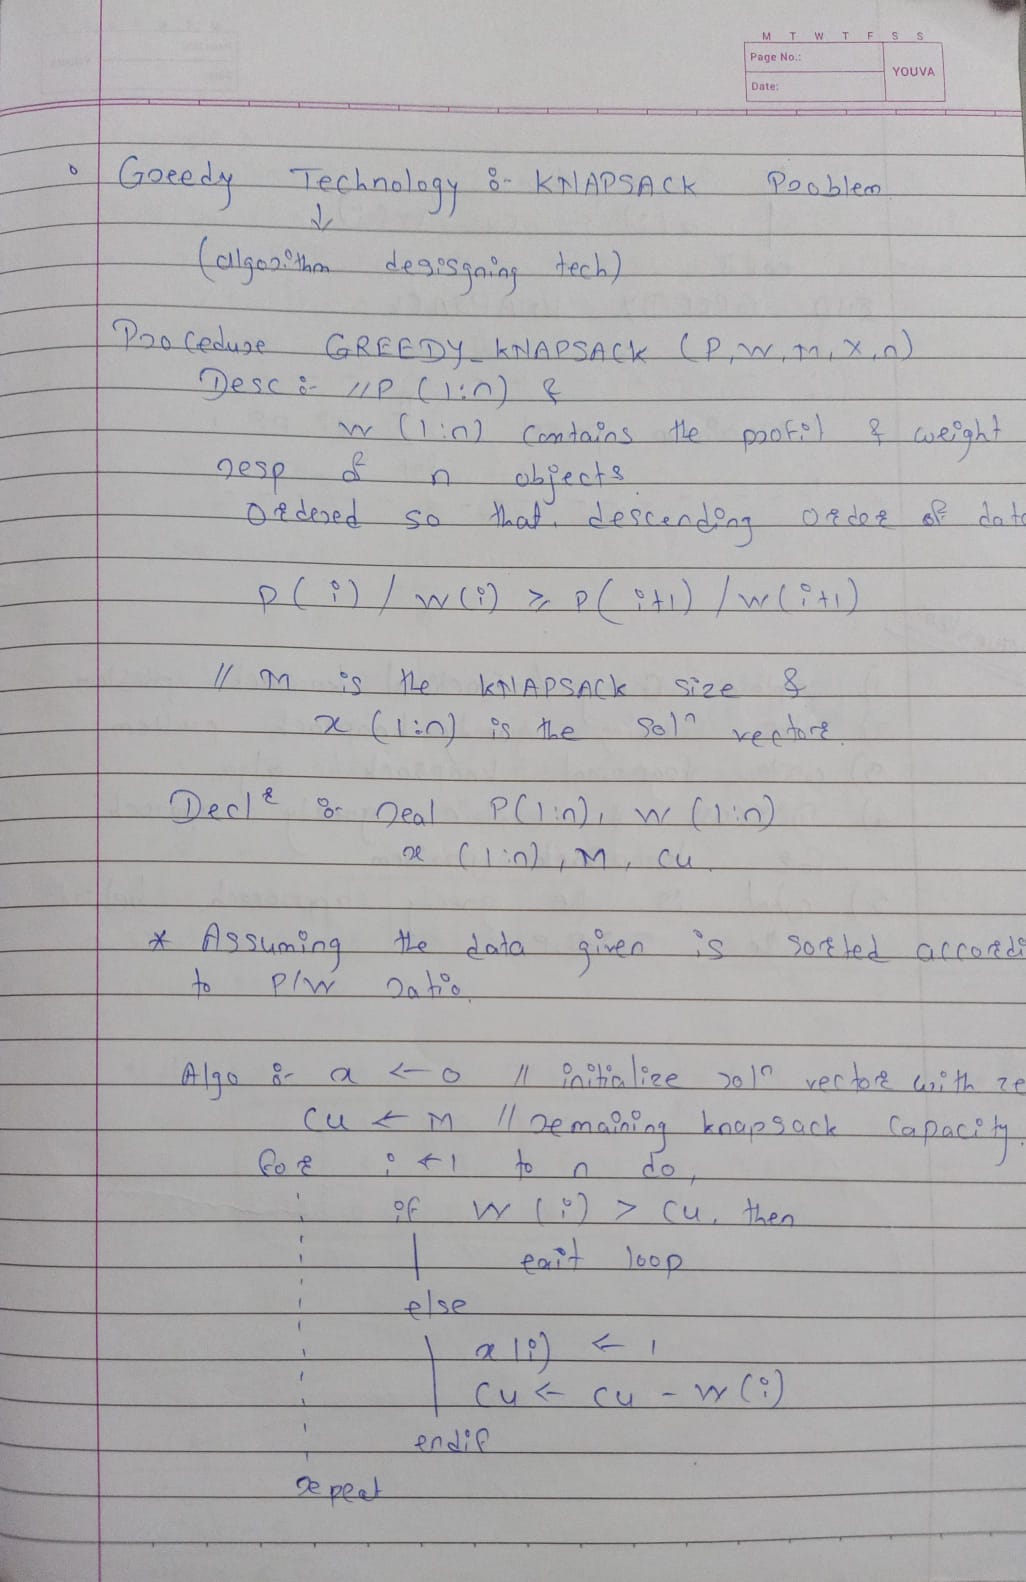 M T W T F S S
Page No.:
YOUVA
Date:
Greedy Technology :- KNAPSACK Problem
↓
(algorithm desisgning tech)
Procedure GREEDY_KNAPSACK (P, W, M, X, n)
Desc :- // P (1:n) &
W (1:n) contains the profit & weight
resp of n objects
Ordered so that descending order of data
P(i) / W(i) ≥ P(i+1) / W(i+1)
// M is the KNAPSACK size &
x (1:n) is the solⁿ vector.
Declʳ :- real P(1:n), W (1:n)
x (1:n), M, cu.
* Assuming the data given is sorted accordi
to P/W ratio.
Algo :- x ← 0 // initialize solⁿ vector with ze
cu ← M // remaining knapsack capacity.
for i ← 1 to n do,
if W (i) > cu, then
exit loop
else
x(i) ← 1
cu ← cu - W(i)
endif
repeat